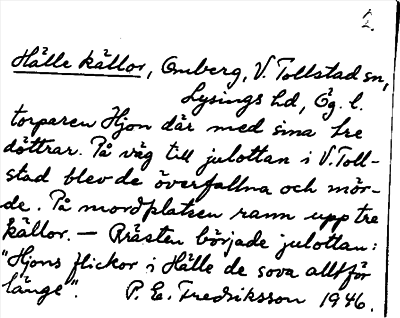 2.
Hälle källor, Omberg, V. Tollstad sn,
Lysings hd, Ög. l.
torparen Hjon där med sina tre
döttrar. På väg till julottan i V. Toll-
stad blev de överfallna och mör-
de. På mordplatsen rann upp tre
källor. — Prästen började julottan:
"Hjons flickor i Hälle de sova alltför
länge". P. E. Fredriksson 1946.